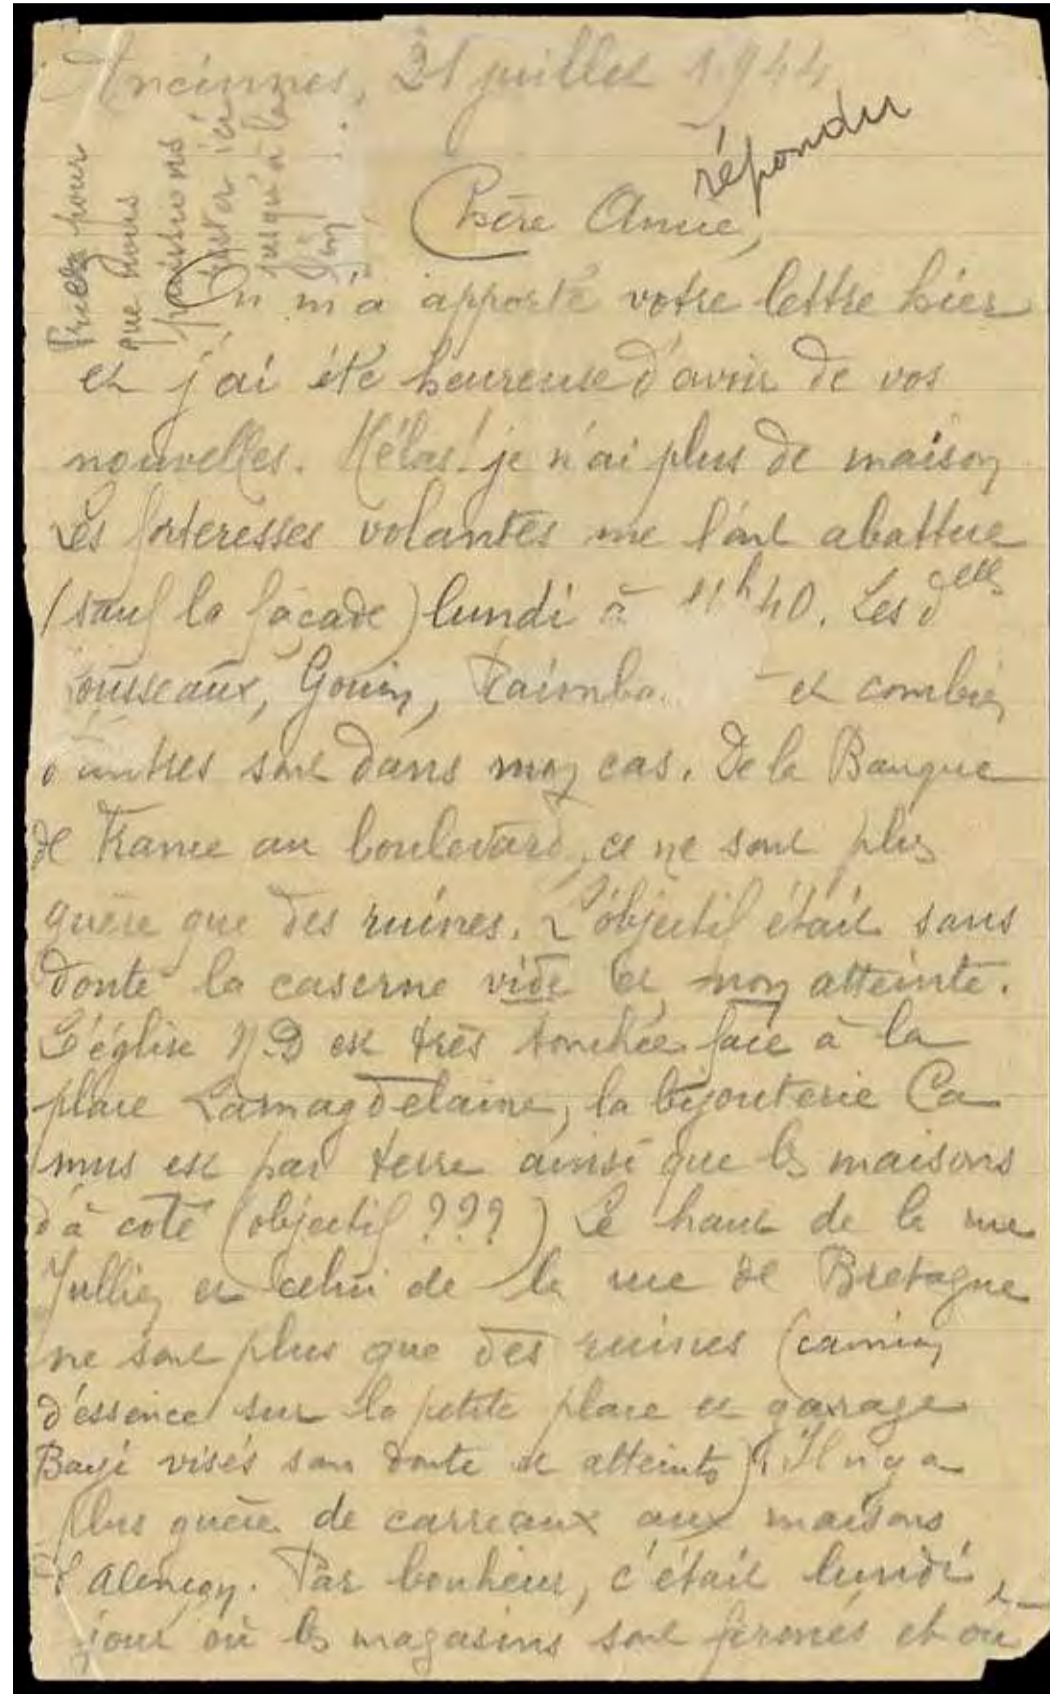 Ancinnes, 21 juillet 1944
répondu
Priez pour
que nous
puissions
rester ici
jusqu'à la
Chère Amie,
On m'a apporté votre lettre hier
et j'ai été heureuse d'avoir de vos
nouvelles. Hélas! je n'ai plus de maison
Les forteresses volantes me l'ont abattue
(sauf la façade) lundi à 11h40. Les delles
ousseaux, Gouin, Raimba et combien
d'autres sont dans mon cas. De la Banque
de France au boulevard, ce ne sont plus
guère que des ruines. L'objectif était sans
doute la caserne vide et non atteinte.
L'église N.D est très touchée face à la
place Lamagdelaine, la bijouterie Ca
mus est par terre ainsi que les maisons
d'à côté (objectif ???) Le haut de la rue
Jullien et celui de la rue de Bretagne
ne sont plus que des ruines (camion
d'essence sur la petite place et garage
visés sans doute et atteints). Il n'y a
plus guère de carreaux aux maisons
d'Alençon. Par bonheur, c'était lundi,
jour où les magasins sont fermés et où